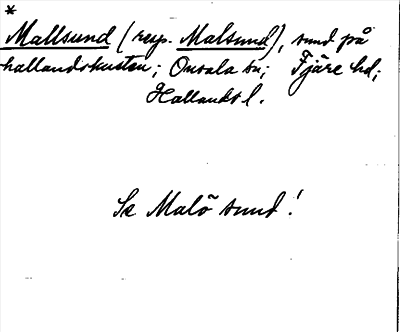 *
Mallsund (resp. Malsund), sund på
hallandskusten; Onsala sn; Fjäre hd;
Hallands l.
Se Malö sund!